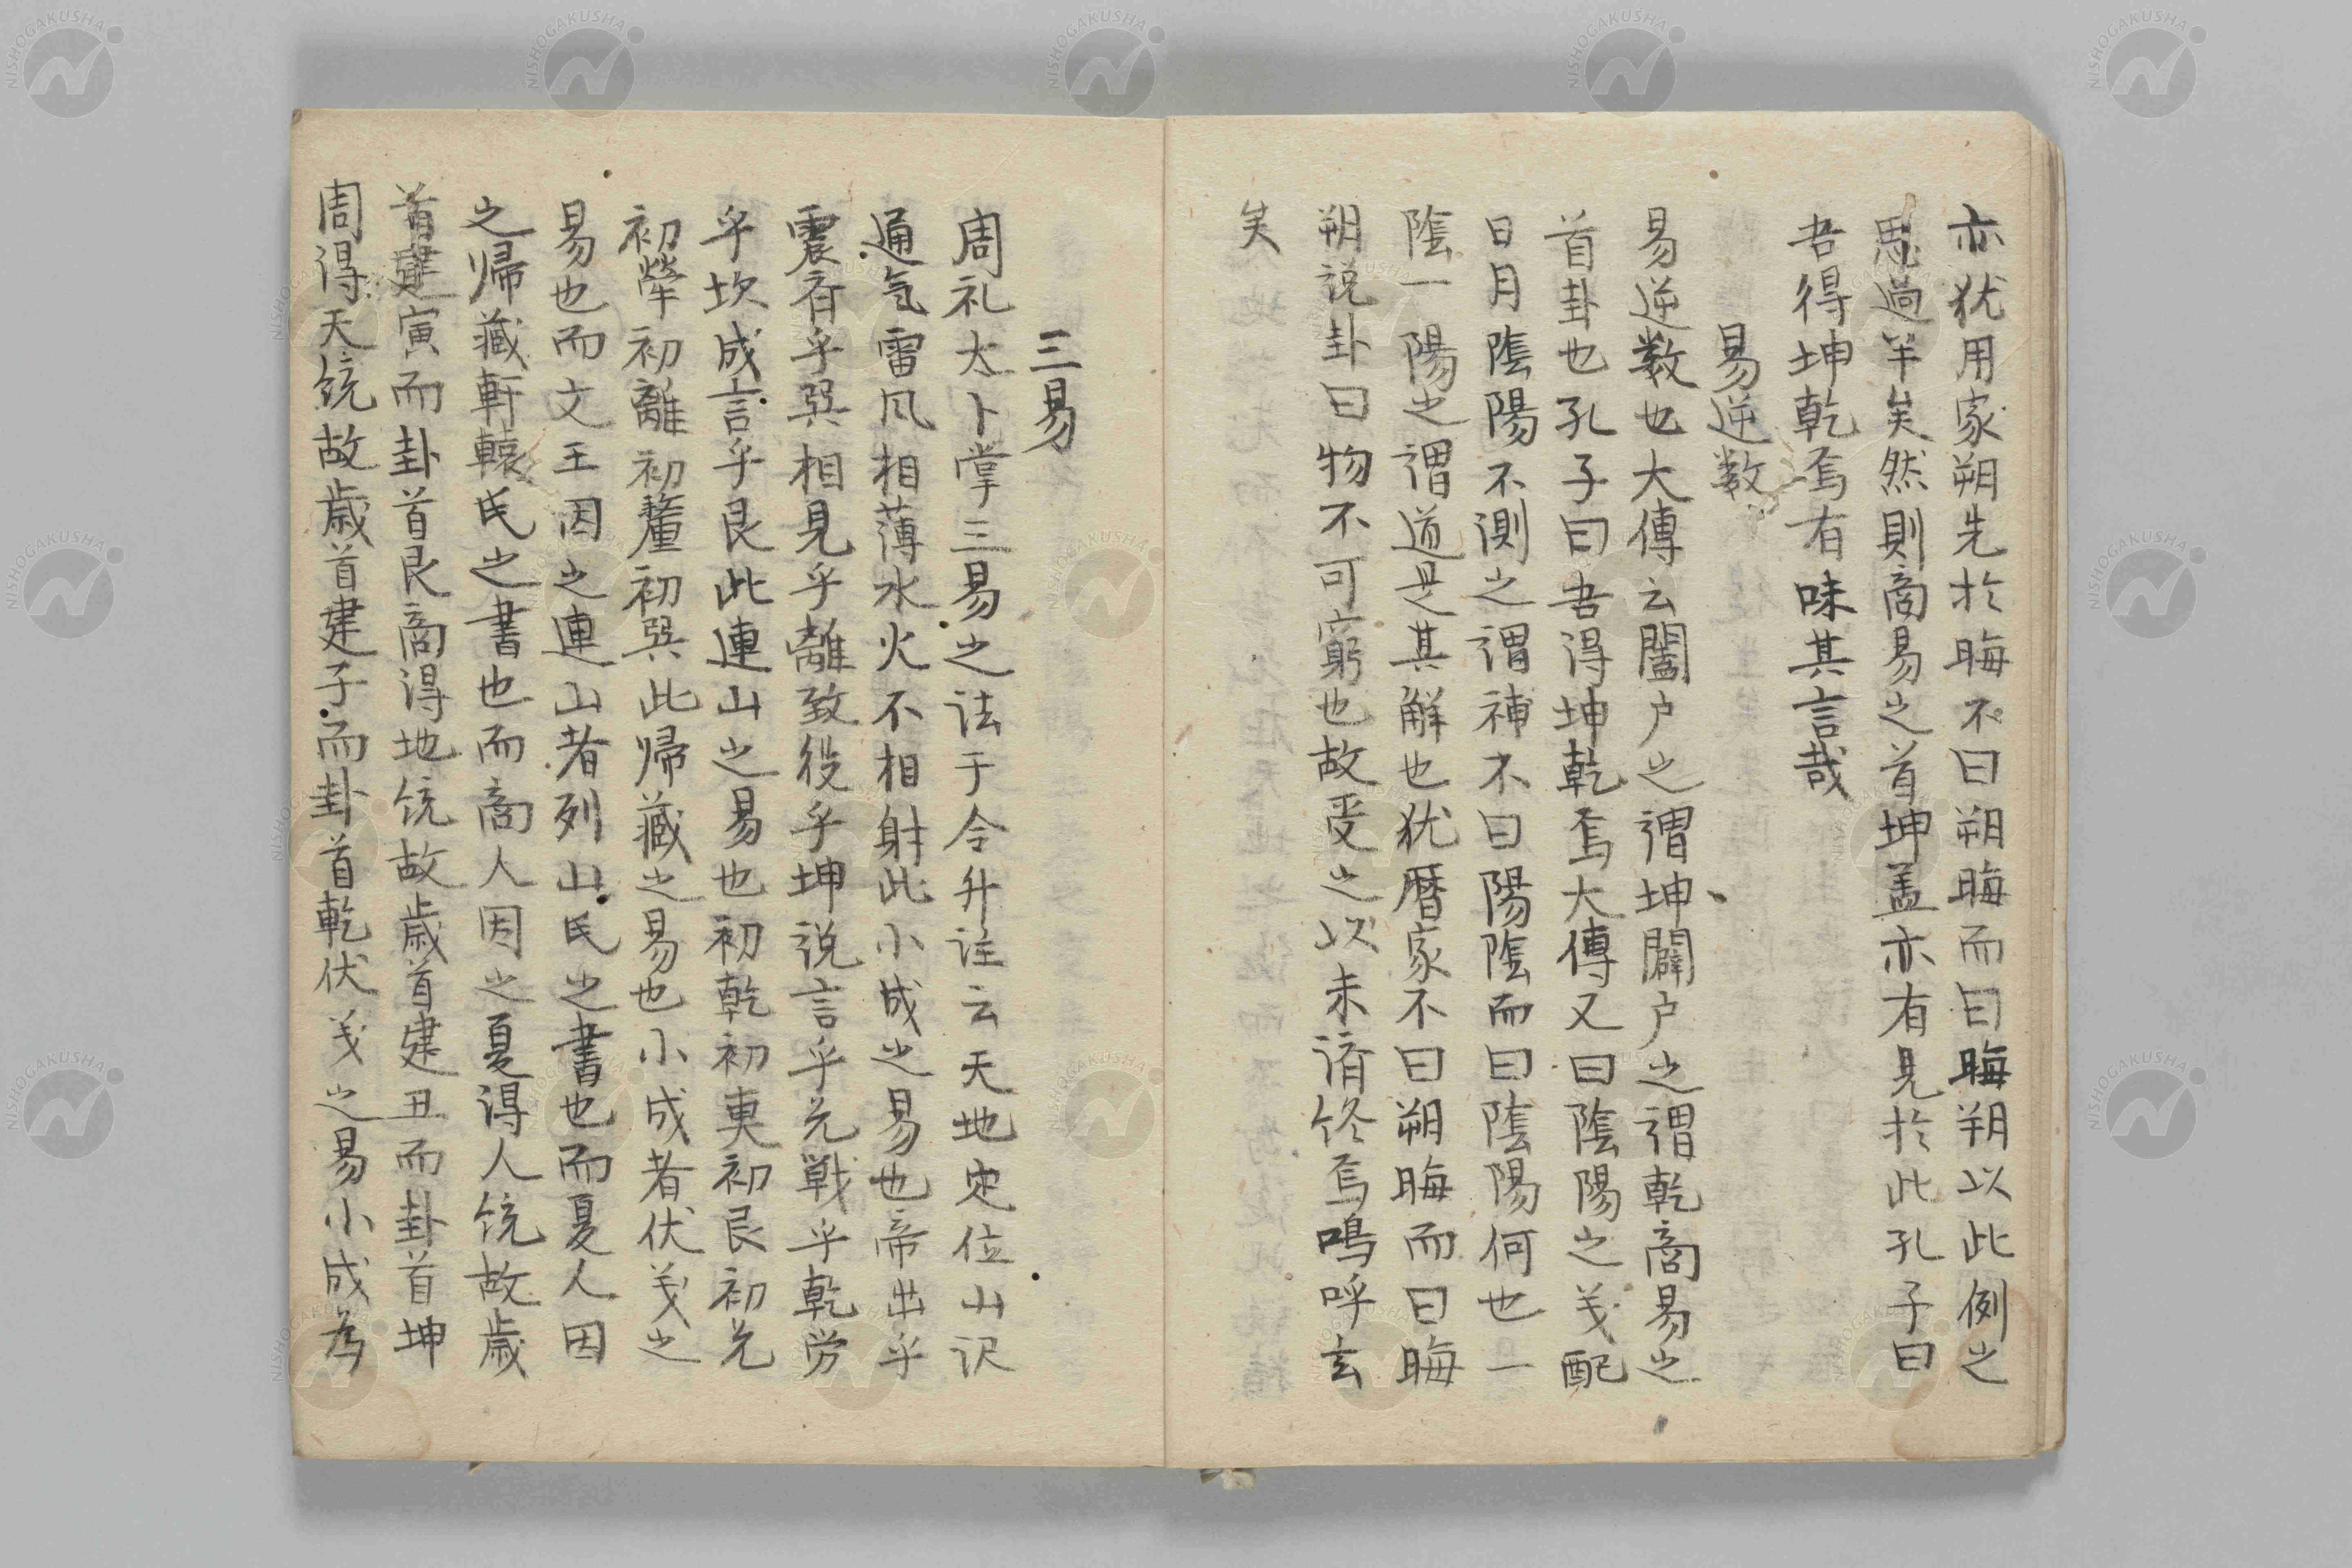 亦犹用家朔先於晦不曰朔晦而曰晦朔以此例之
思過半矣然則商易之首坤盖亦有見於此孔子曰
吾得坤乾焉有味其言哉
易逆数
易逆数也大傳云闔户之謂坤闢户之謂乾商易之
首卦也孔子曰吾得坤乾焉大傳又曰陰陽之义配
日月陰陽不測之謂神不曰陽陰而曰陰陽何也一
陰一陽之謂道是其解也犹暦家不曰朔晦而曰晦
朔说卦曰物不可窮也故受之以未济终焉鳴呼玄
矣
三易
周礼太卜掌三易之法于令升註云天地定位山沢
通気雷风相薄水火不相射此小成之易也帝出乎
震斉乎巽相見乎離致役乎坤説言乎兑戦乎乾労
乎坎成言乎艮此連山之易也初乾初奭初艮初兑
初犖初離初釐初巽此帰藏之易也小成者伏羲之
易也而文王因之連山者列山氏之書也而夏人因
之帰藏軒轅氏之書也而商人因之夏得人统故歳
首建寅而卦首艮商得地统故歳首建丑而卦首坤
周得天统故歳首建子而卦首乾伏羲之易小成為